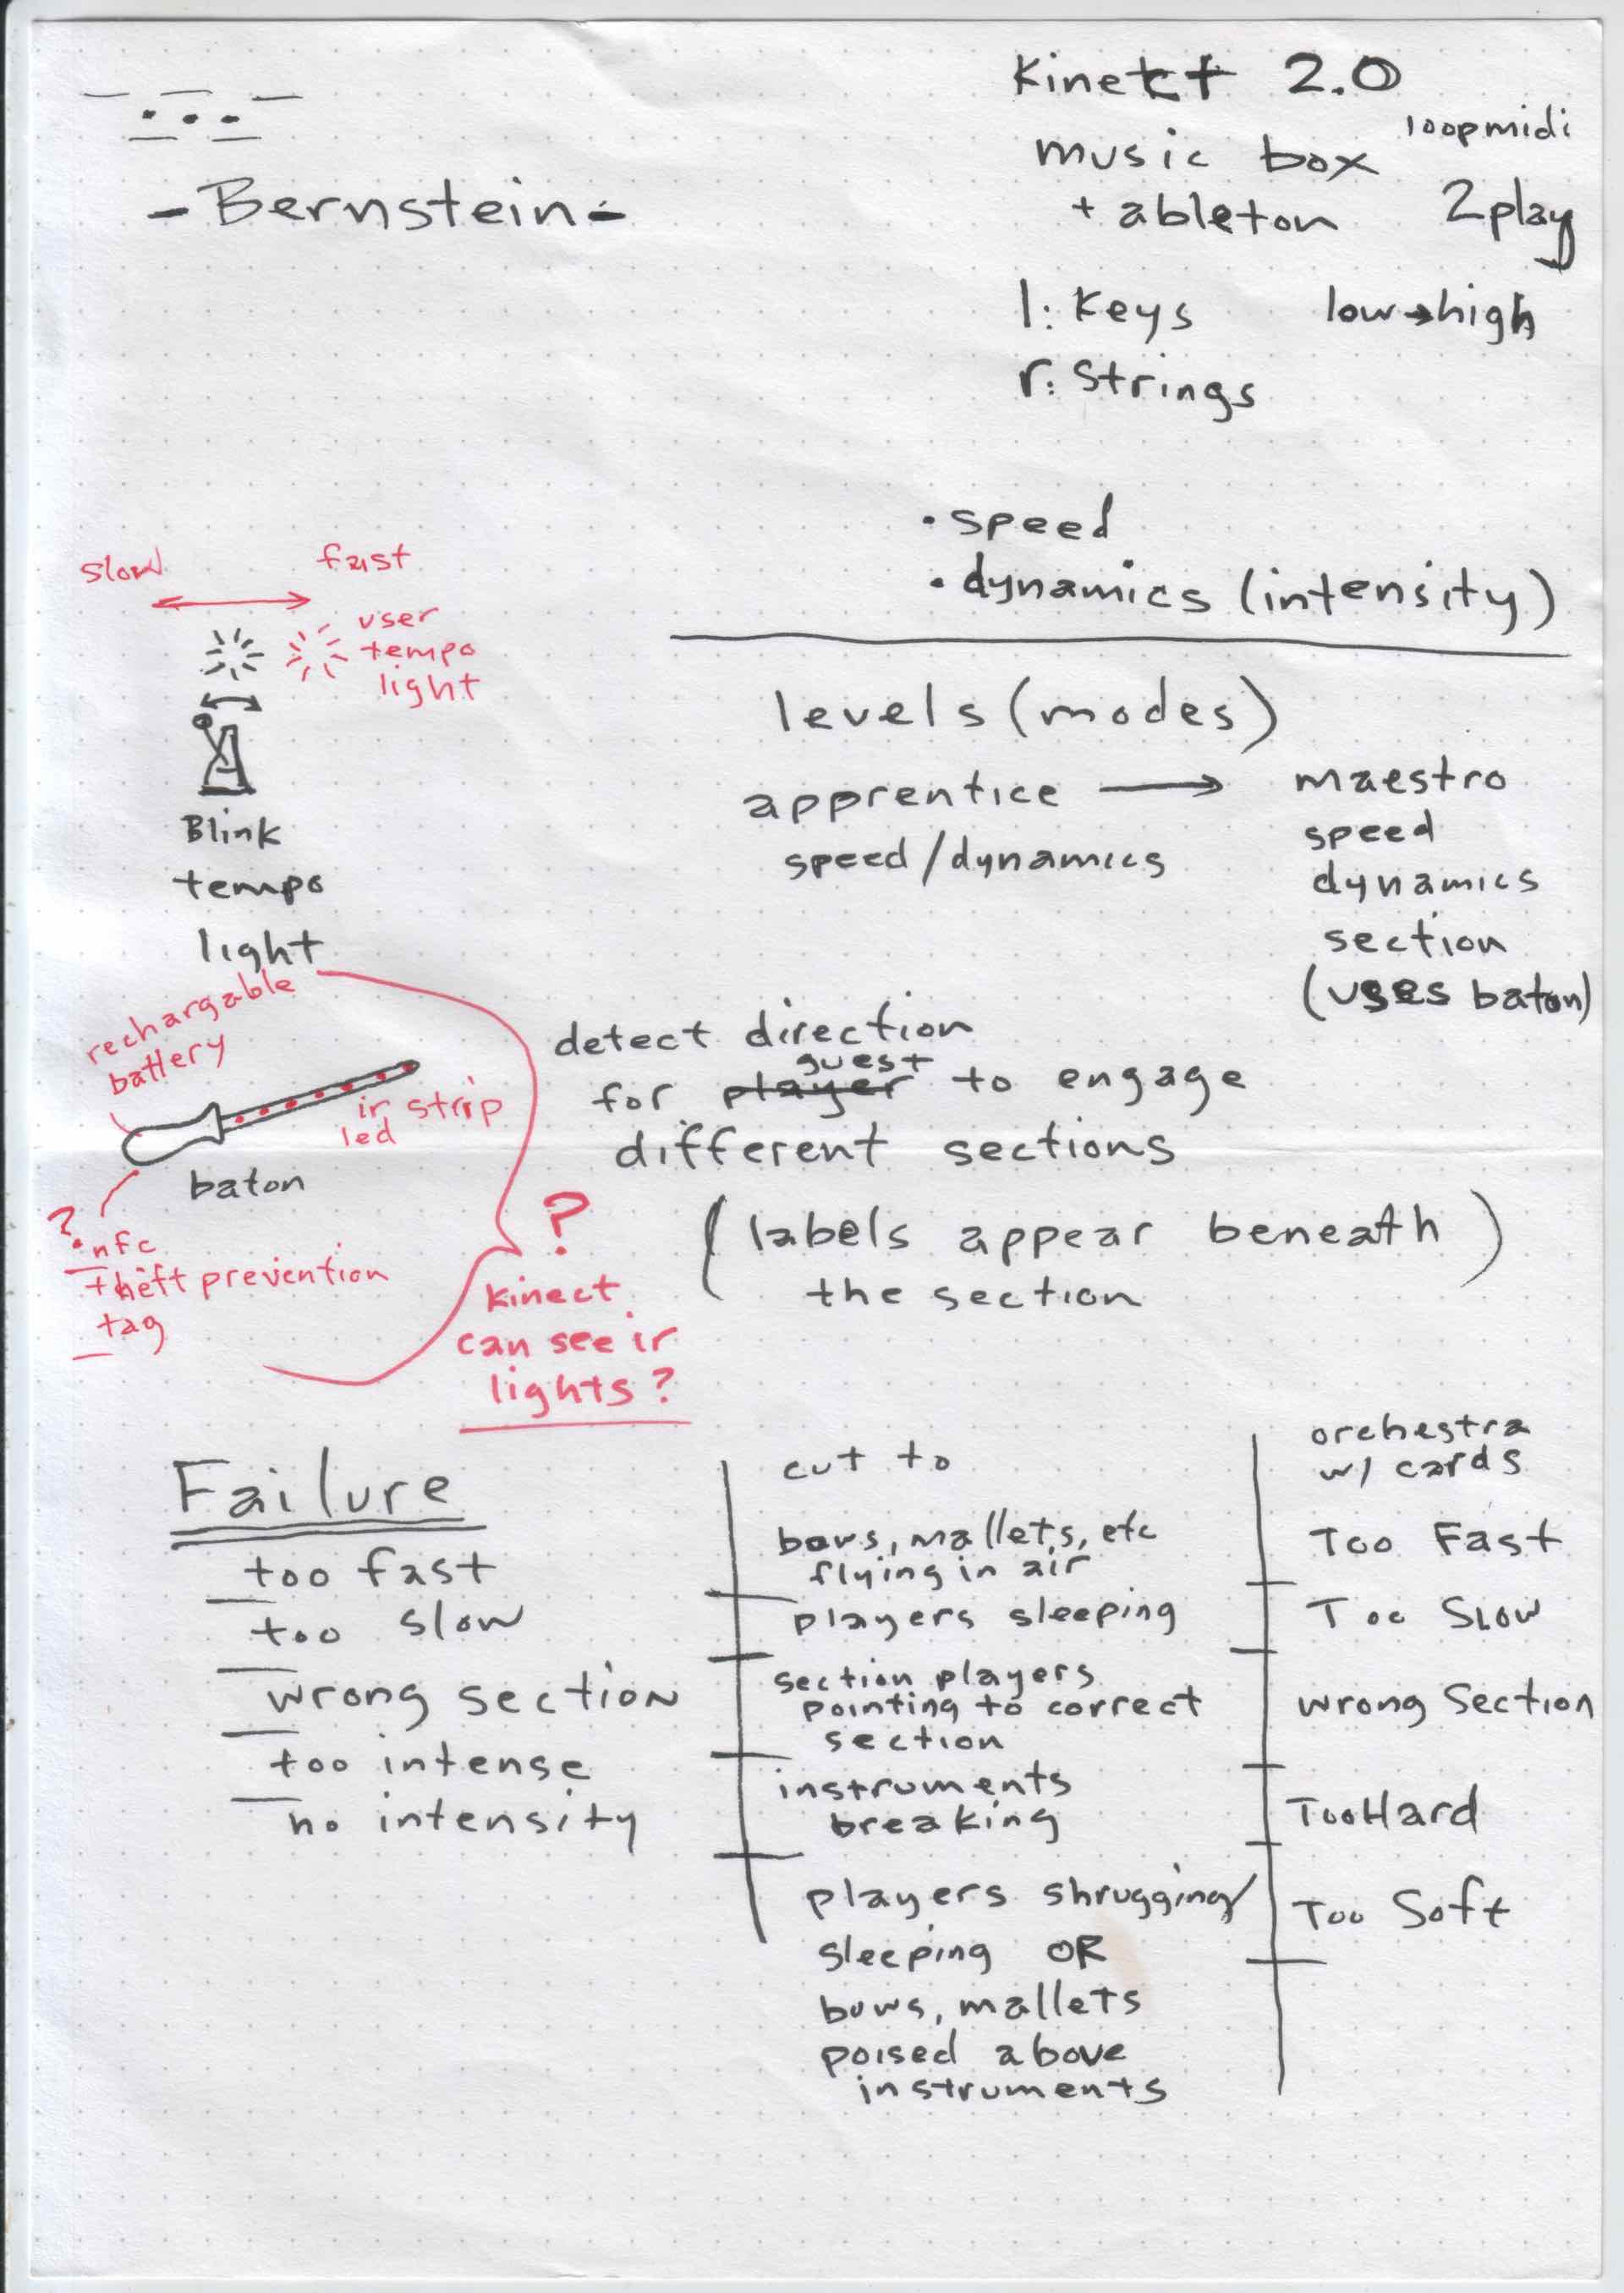 -Bernstein-
Kinect 2.0
music box
loopmidi
+ ableton
2play
l: Keys
low→high
r: Strings
• speed
• dynamics (intensity)
slow
fast
user
tempo
light
Blink
tempo
light
levels (modes)
apprentice → maestro
speed/dynamics
speed
dynamics
section
(uses baton)
rechargable
battery
ir strip
led
baton
? nfc
theft prevention
tag
detect direction
guest
for player to engage
different sections
(labels appear beneath)
the section
?
kinect
can see ir
lights?
Failure
too fast
too slow
wrong section
too intense
no intensity
cut to
bows, mallets, etc
flying in air
players sleeping
section players
pointing to correct
section
instruments
breaking
players shrugging/
sleeping OR
bows, mallets
poised above
instruments
orchestra
w/ cards
Too Fast
Too Slow
Wrong Section
Too Hard
Too Soft